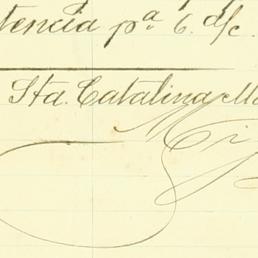 tencia pª 6. d/c.
Sta. Catalina Ma